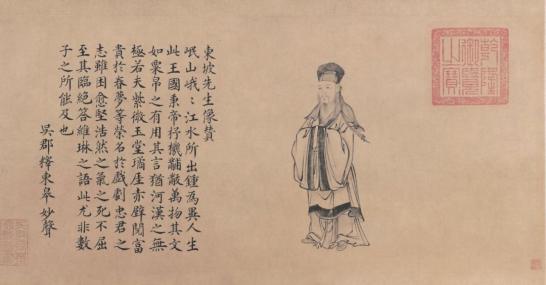 乾隆御覽之寶
東坡先生像贊
岷山峨〻江水所出鍾為異人生
此王國秉帝杼機黼黻萬物其文
如粟帛之有用其言猶河漢之無
極若夫紫微玉堂瓊崖赤壁閱富
貴於春夢等榮名於戲劇忠君之
志雖困愈堅浩然之氣之死不屈
至其臨絕答維琳之語此尤非數
子之所能及也
吳郡釋東皋妙聲